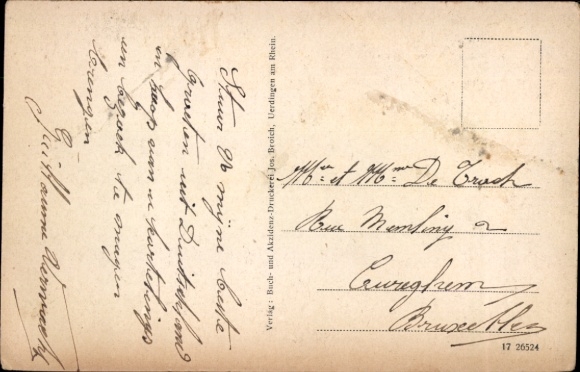 Stuur U mijne beste
Groeten uit Duitschland
en hoop van u hartelings
een bezoek te mogen
brengen
Guillaume
Verlag: Buch- und Akzidenz-Druckerei Jos. Broich, Uerdingen am Rhein.
Mr et Mme De Troch
Rue Memling 2
Cureghem
Bruxelles
17 26524